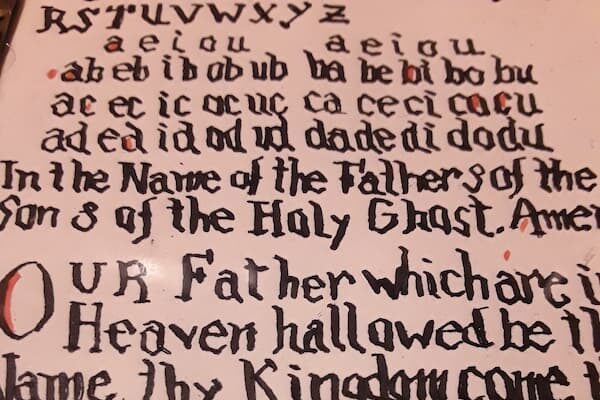 RSTUVWXYZ
a e i o u a e i o u
ab eb ib ob ub ba be bi bo bu
ac ec ic oc uc ca ce ci co cu
ad ed id od ud da de di do du
In the Name of the Father & of the
Son & of the Holy Ghost. Amen
OUR Father which are in
Heaven hallowed be th
Name, thy Kingdom come, t